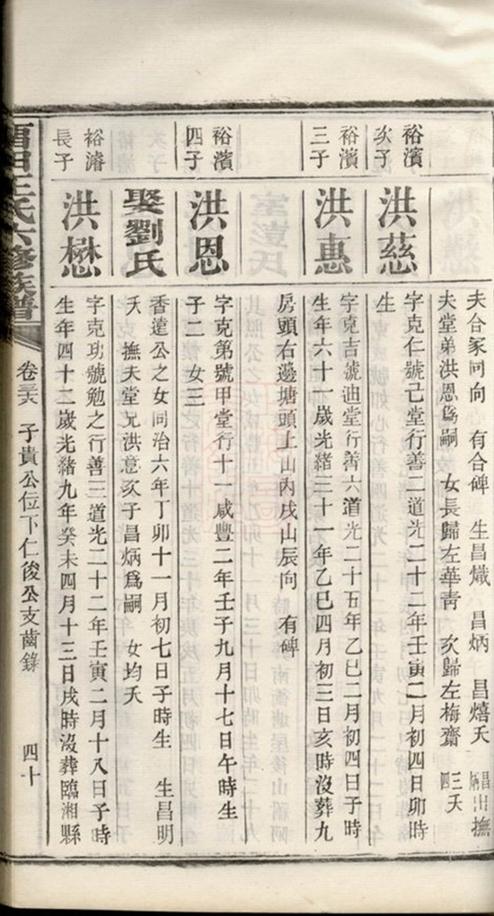 夫合冢同向 有合碑 生昌熾 昌炳 昌熺夭 昌炳出撫
夫堂弟洪恩爲嗣 女長歸左華青 次歸左梅齋 三夭
裕濱次子
洪慈
字克仁號己堂行善二道光二十二年壬寅二月初四日卯時
生
裕濱三子
洪惠
字克吉號迪堂行善六道光二十五年乙巳二月初四日子時
生年六十一歲光緒三十一年乙巳四月初三日亥時沒葬九
房頭右邊塘頭上山內戌山辰向 有碑
裕濱四子
洪恩
字克第號甲堂行十一咸豐二年壬子九月十七日午時生
子二 女三
娶劉氏
香遠公之女同治六年丁卯十一月初七日子時生 生昌明
夭 撫夫堂兄洪意次子昌炳爲嗣 女均夭
裕濬長子
洪懋
字克功號勉之行善三道光二十二年壬寅二月十八日子時
生年四十二歲光緒九年癸未四月十三日戌時沒葬臨湘縣
王氏六修族譜
卷三六 子貴公位下仁後公支齒錄 四十